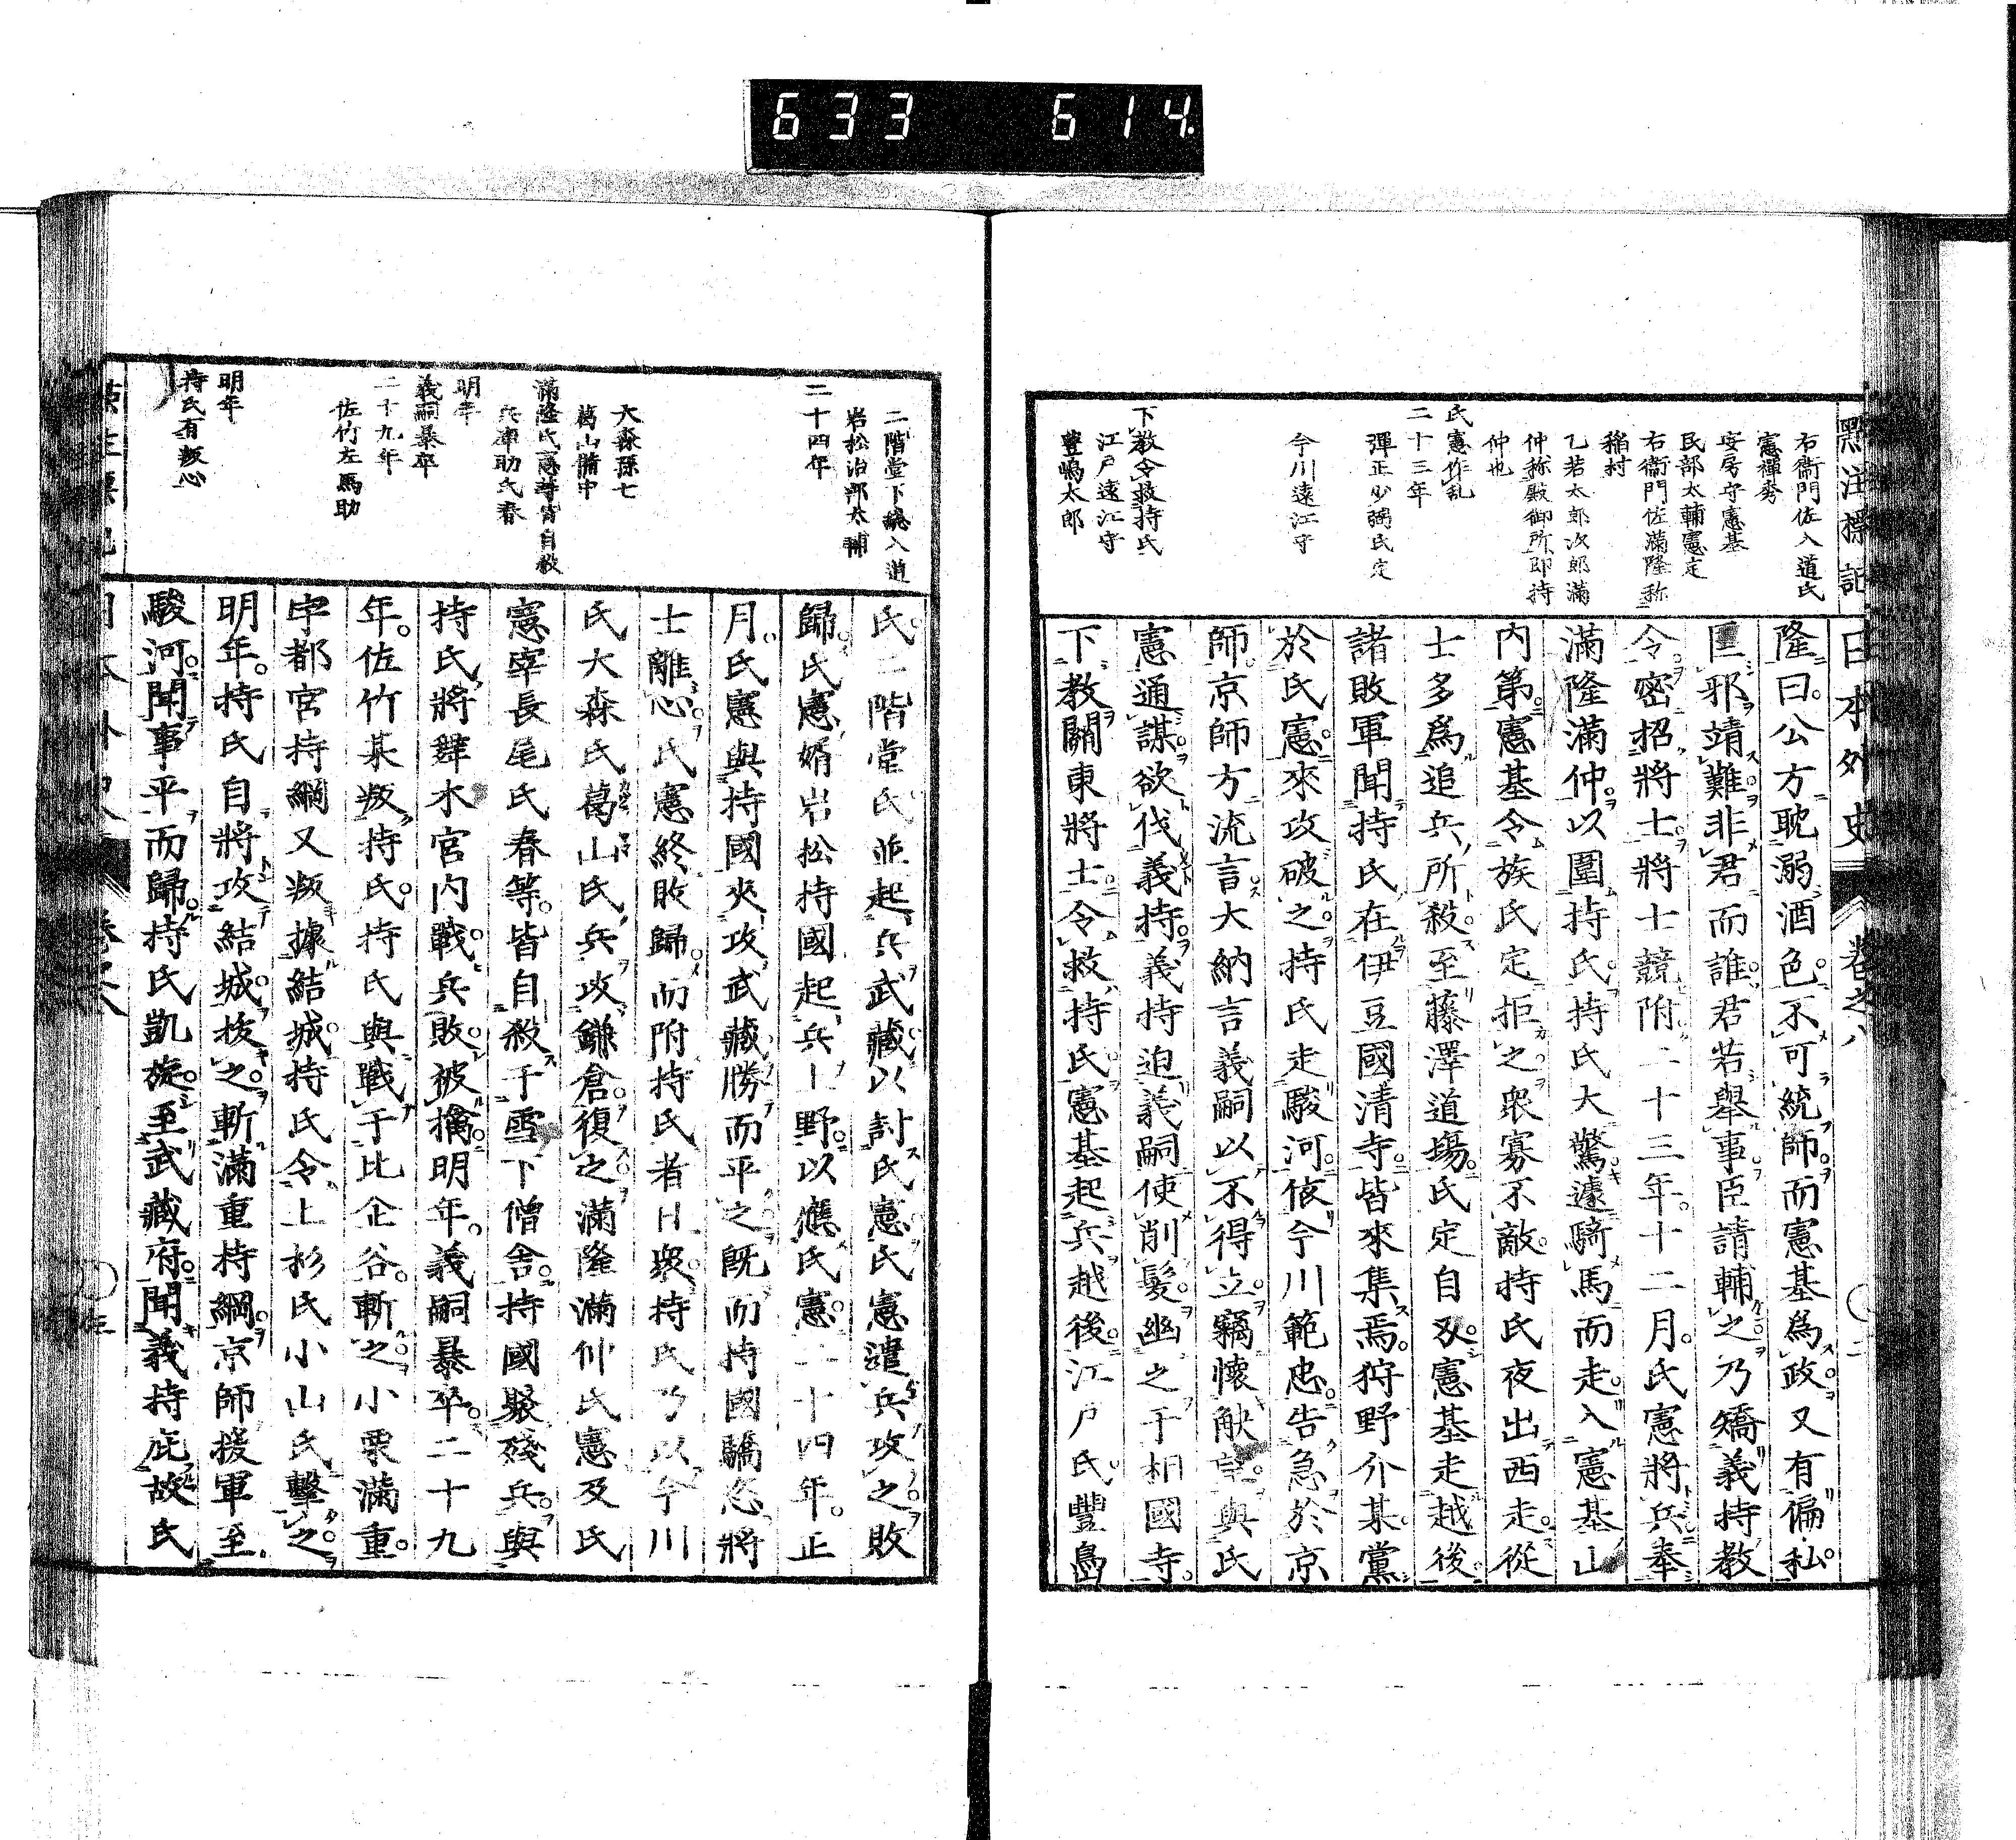 633 614
點注標記
日本外史
卷之八
右衞門佐入道氏
憲禪秀
安房守憲基
民部太輔憲定
右衞門佐滿隆称
稲村
乙若太郎次郎滿
仲称殿御所即持
仲也
氏憲作乱
二十三年
彈正少弼氏定
今川遠江守
下教令救持氏
江戸遠江守
豊嶋太郎
隆曰公方耽溺酒色不可統師而憲基爲政又有偏私
匡邪靖難非君而誰君若舉事臣請輔之乃矯義持教
令密招將士將士競附二十三年十二月氏憲將兵奉
滿隆滿仲以圍持氏持氏大驚遽騎馬而走入憲基山
内第憲基令族氏定拒之眾寡不敵持氏夜出西走從
士多爲追兵所殺至藤澤道場氏定自刄憲基走越後
諸敗軍聞持氏在伊豆國清寺皆來集焉狩野介某黨
於氏憲來攻破之持氏走駿河依今川範忠告急於京
師京師方流言大納言義嗣以不得立竊懷觖望與氏
憲通謀欲伐義持義持迫義嗣使削髮幽之于相國寺
下教關東將士令救持氏憲基起兵越後江戸氏豐島
二階堂下總入道
岩松治部大輔
二十四年
大森孫七
葛山備中
滿隆氏憲等皆自殺
兵庫助氏春
明年
義嗣暴卒
二十九年
佐竹左馬助
明年
持氏有叛心
氏二階堂氏並起兵武藏以討氏憲氏憲遣兵攻之敗
歸氏憲婿岩松持國起兵上野以應氏憲二十四年正
月氏憲與持國夾攻武藏勝而平之既而持國驕恣將
士離心氏憲終敗歸而附持氏者日眾持氏乃以今川
氏大森氏葛山氏兵攻鎌倉復之滿隆滿仲氏憲及氏
憲宰長尾氏春等皆自殺于雪下僧舍持國聚殘兵與
持氏將舞木宮内戰兵敗被擒明年義嗣暴卒二十九
年佐竹某叛持氏持氏與戰于比企谷斬之小栗滿重
宇都宮持綱又叛據結城持氏令上杉氏小山氏擊之
明年持氏自將攻結城拔之斬滿重持綱京師援軍至
駿河聞事平而歸持氏凱旋至武藏府聞義持庇故氏